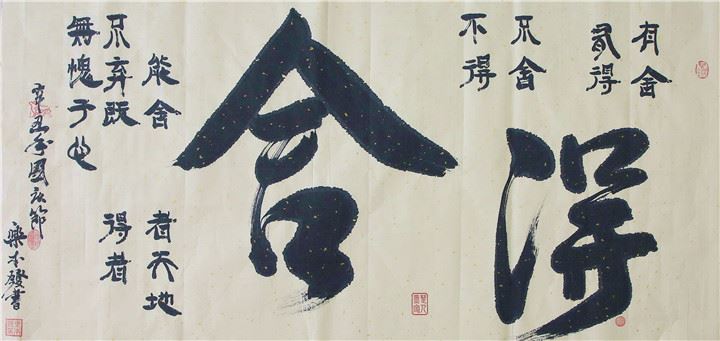 舍得
有舍
得
不舍
不得
能舍者天地
不弃既得者
無愧于心
辛丑年國慶節
樂發書